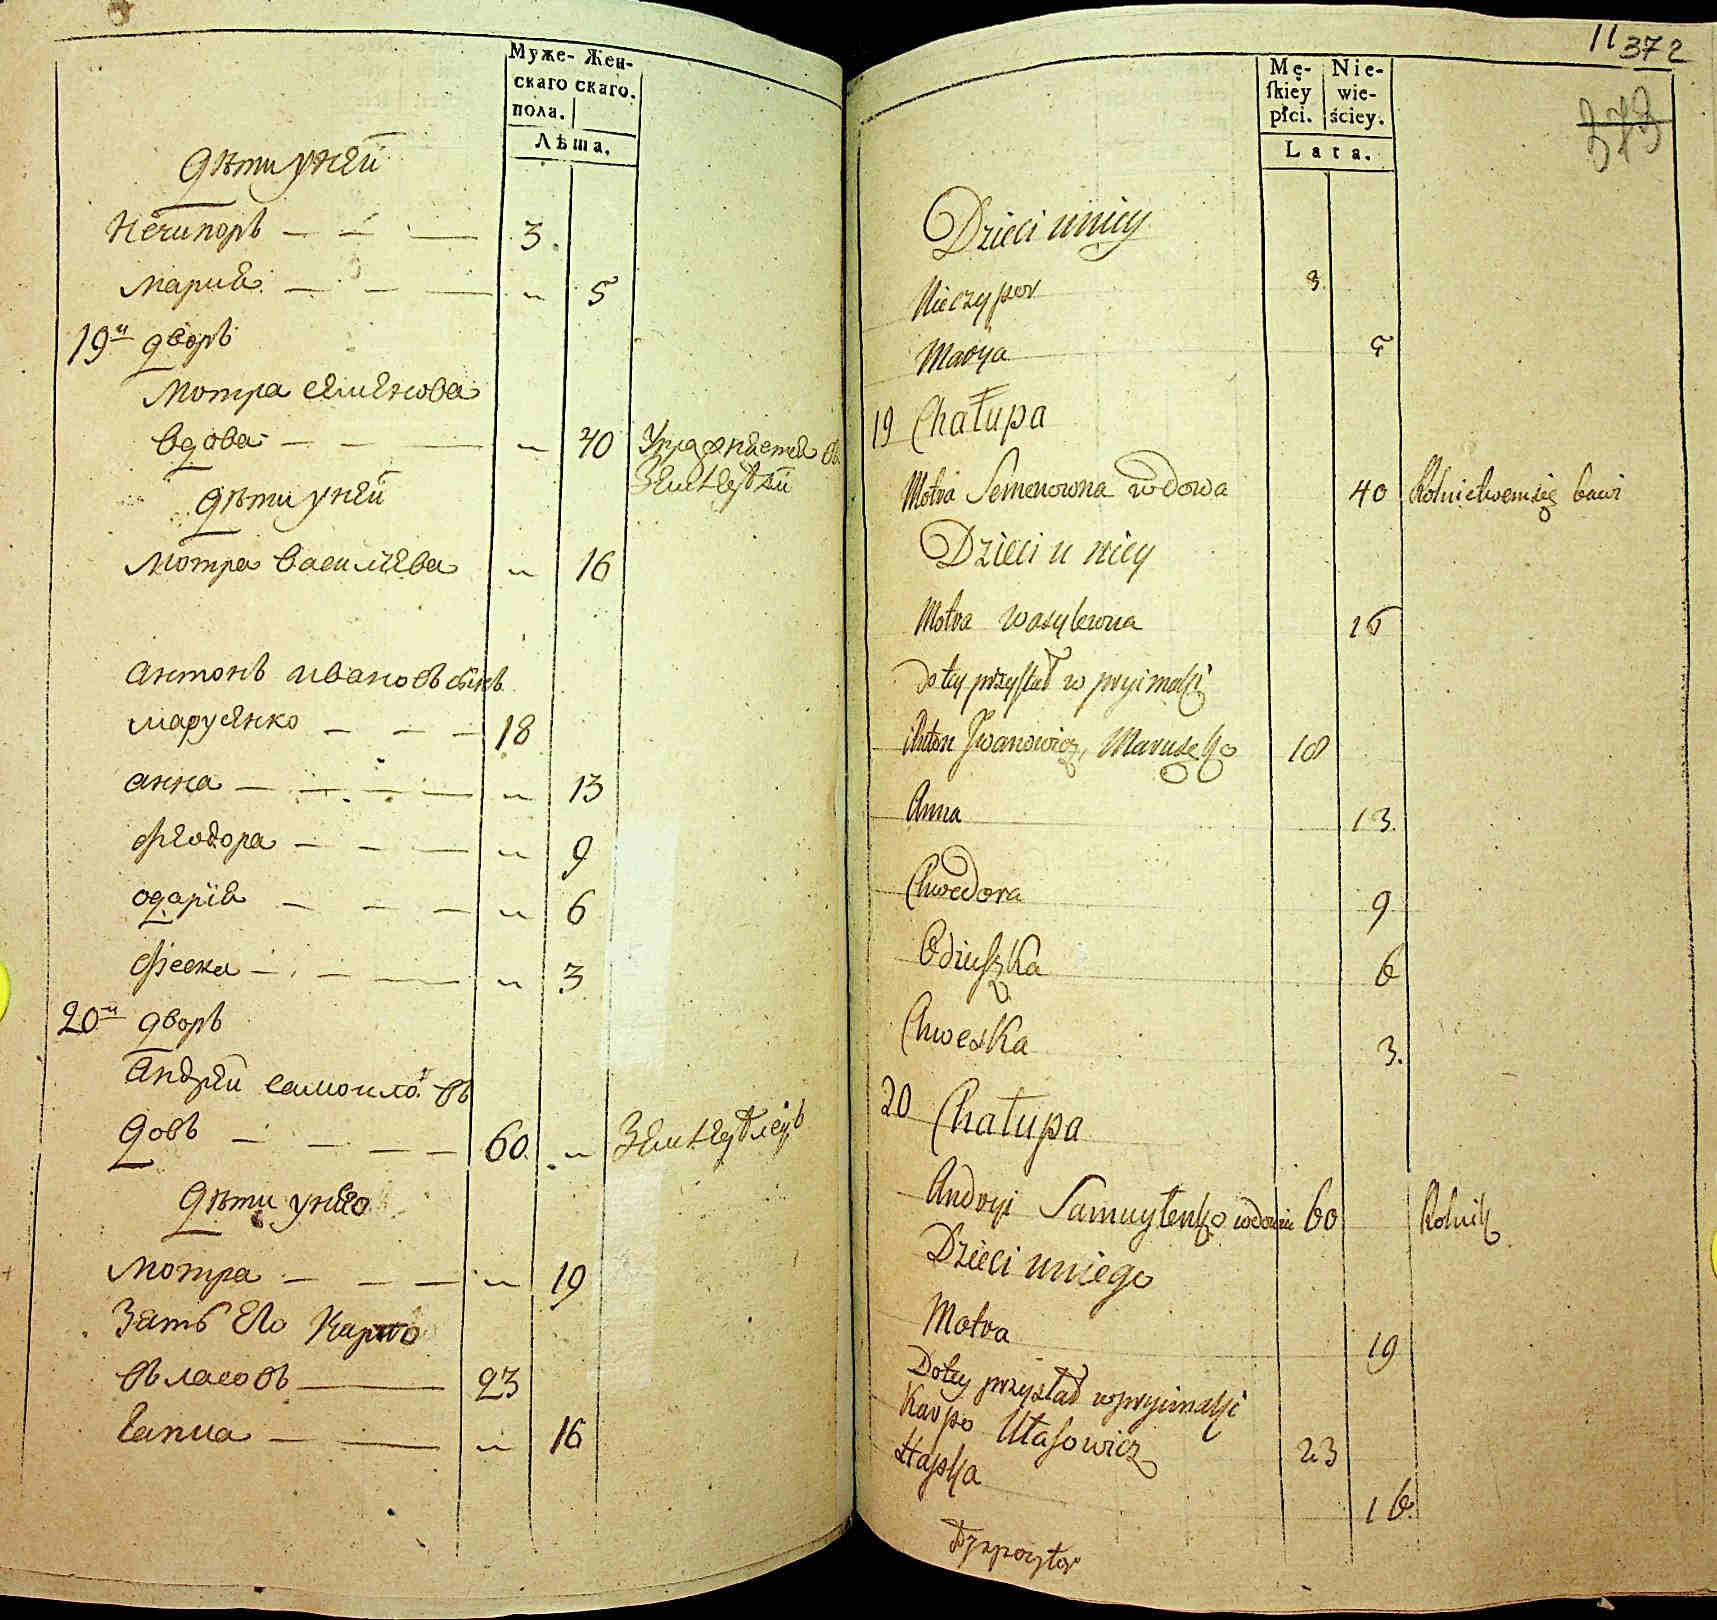 Муже- Жен-
скаго скаго.
пола.
Лѣта.
Дѣти у ней
Нечипоръ — — — 3.
Мария — — — „ 5
19й дворъ
Мотра Семенова
вдова — — — „ 40 Упражняется въ
земледѣлій
Дѣти у ней
Мотра Васильева „ 16
Антонъ Ивановъ сынъ
Марусенко — — — 18
Анна — — — — „ 13
Феодора — — — „ 9
Одарія — — — „ 6
Феска — — — „ 3
20й дворъ
Андрей Самойловъ
вдовъ — — — — 60 „ Земледѣлецъ
Дѣти у него
Мотра — — — „ 19
Зать Его Карпо
Власовъ — 23
Гапиа — — „ 16
11 372
373
Mę- Nie-
skiey wie-
płci. ściey.
Lata.
Dzieci u niey
Nieczypor 3
Marya 5
19 Chałupa
Motra Semenowna wdowa 40 Rolnictwem się bawi
Dzieci u niey
Motra Wasylewna 16
do tey przystał w pryimaki
Anton Iwanowicz, Marusenko 18
Anna 13.
Chwedora 9
Odiuszka 6
Chweska 3.
20 Chałupa
Andryi Samuylenko wdowiec 60 Rolnik
Dzieci u niego
Motra 19
Do tey przystał w pryimaki
Karpo Ułasowicz 23
Hapka 16.